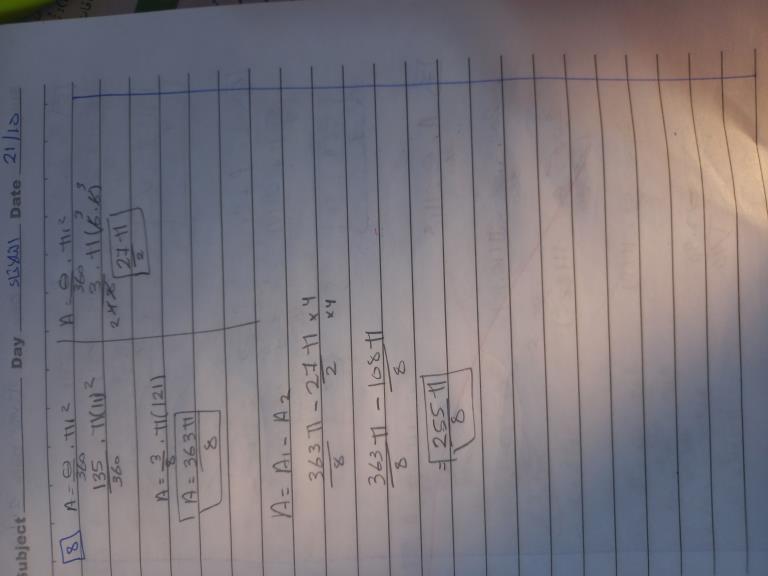 Subject Day Date 21/10
8
A = θ/360 · πr²
135/360 · π(11)²
A = 3/8 · π(121)
A = 363π/8
A = θ/360 · πr²
3/2 4 8 · π(6·6) 3 3
27π/2
A = A₁ - A₂
363π/8 - 27π/2 ×4 ×4
363π/8 - 108π/8
= 255π/8